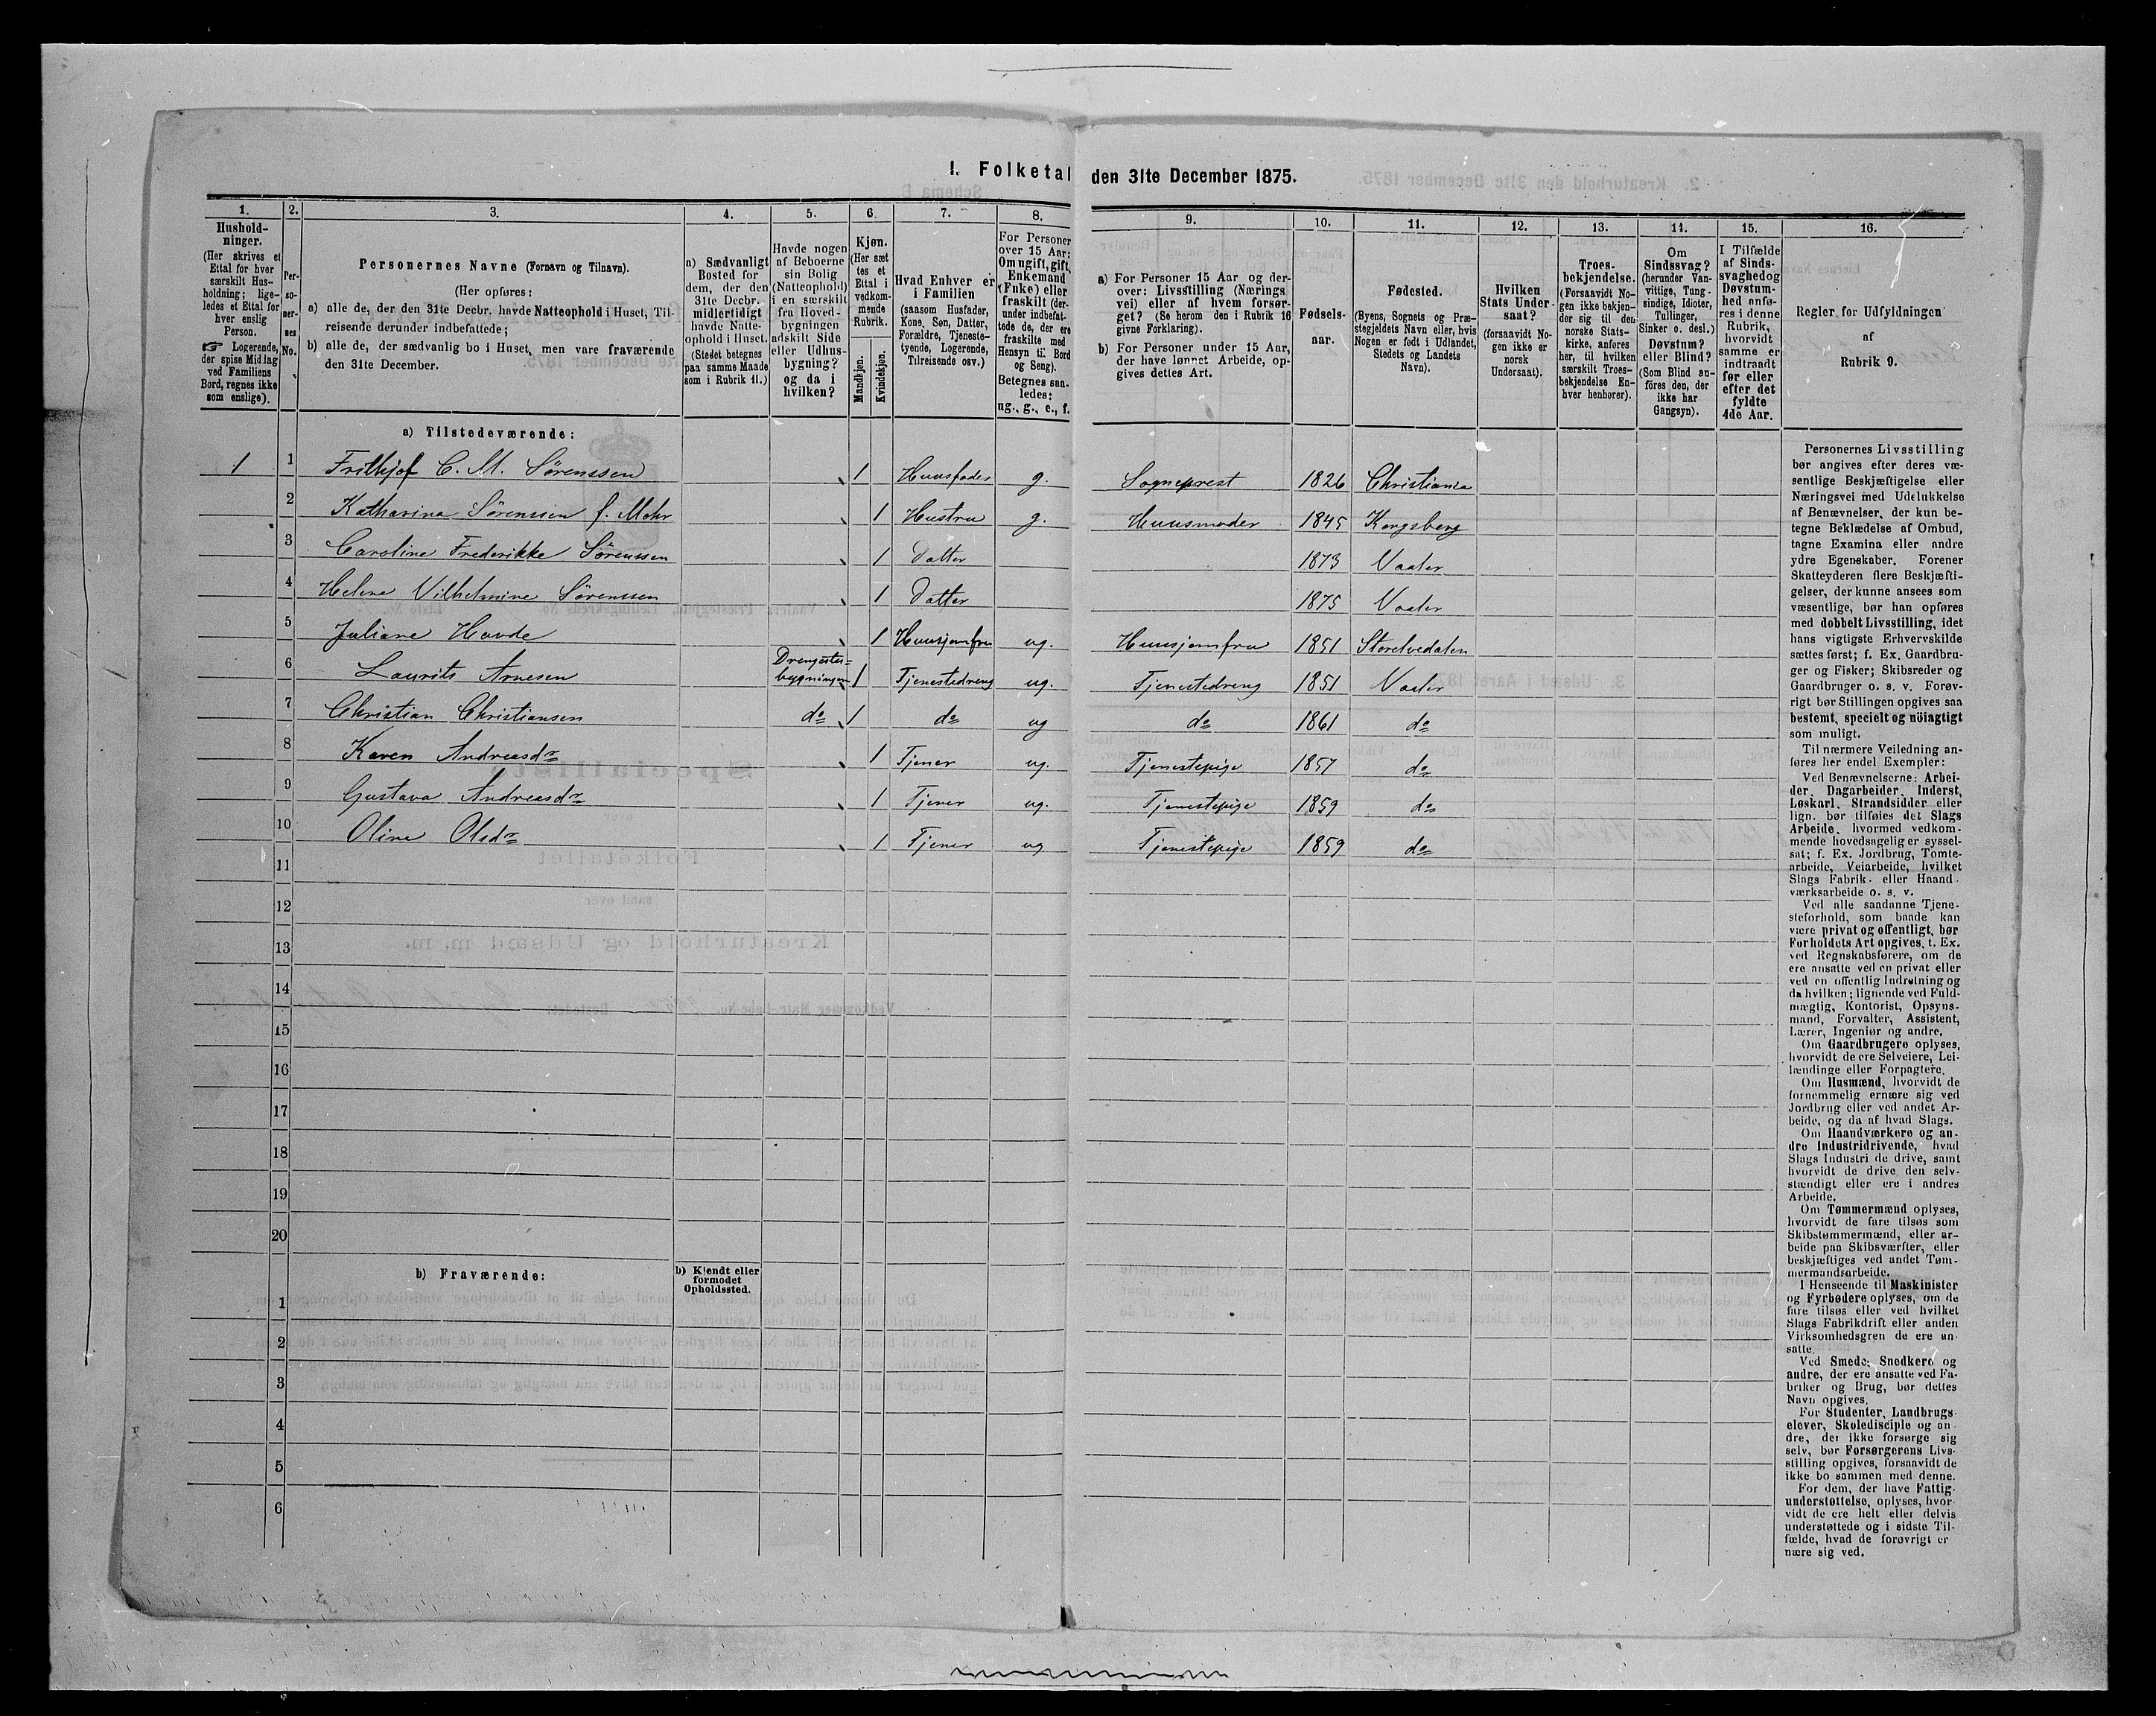 I. Folketal den 31te December 1875.
1. 2. 3. 4. 5. 6. 7. 8. 9. 10. 11. 12. 13. 14. 15. 16.
Hushold-
ninger.
(Her skrives et
Ettal for hver
særskilt Hus-
holdning; lige-
ledes et Ettal for
hver enslig
Person.
☞ Logerende,
der spise Middag
ved Familiens
Bord, regnes ikke
som enslige).
Per-
so-
ner-
nes
No.
Personernes Navne (Fornavn og Tilnavn).
(Her opføres:
a) alle de, der den 31te Decbr. havde Natteophold i Huset, Til-
reisende derunder indbefattede;
b) alle de, der sædvanlig bo i Huset, men vare fraværende
den 31te December.
a) Sædvanligt
Bosted for
dem, der den
31te Decbr.
midlertidigt
havde Natte-
ophold i Huset.
(Stedet betegnes
paa samme Maade
som i Rubrik 11.)
Havde nogen
af Beboerne
sin Bolig
(Natteophold)
i en særskilt
fra Hoved-
bygningen
adskilt Side
eller Udhus-
bygning?
og da i
hvilken?
Kjøn.
(Her sæt
tes et
Ettal i
vedkom-
mende
Rubrik.
Mandkjøn.
Kvindekjøn.
Hvad Enhver er
i Familien
(saasom Husfader,
Kone, Søn, Datter,
Forældre, Tjeneste-
tyende, Logerende,
Tilreisende osv.)
For Personer
over 15 Aar:
Om ugift, gift,
Enkemand
(Enke) eller
fraskilt (der-
under indbefat-
tede de, der ere
fraskilte med
Hensyn til Bord
og Seng).
Betegnes saa-
ledes:
ug., g., e., f.
a) For Personer 15 Aar og der-
over: Livsstilling (Nærings
vei) eller af hvem forsør-
get? (Se herom den i Rubrik 16
givne Forklaring).
b) For Personer under 15 Aar,
der have lønnet Arbeide, op-
gives dettes Art.
Fødsels-
aar.
Fødested.
(Byens, Sognets og Præ-
stegjeldets Navn eller, hvis
Nogen er født i Udlandet,
Stedets og Landets
Navn).
Hvilken
Stats Under-
saat?
(forsaavidt No-
gen ikke er
norsk
Undersaat).
Troes-
bekjendelse.
(Forsaavidt No-
gen ikke bekjen-
der sig til den
norske Stats-
kirke, anføres
her, til hvilken
særskilt Troes-
bekjendelse En-
hver henhører).
Om
Sindssvag?
(herunder Van-
vittige, Tung-
sindige, Idioter,
Tullinger,
Sinker o. desl.)
Døvstum?
eller Blind?
(Som Blind an-
føres den, der
ikke har
Gangsyn).
I Tilfælde
af Sinds-
svaghed og
Døvstum-
hed anfø-
res i denne
Rubrik,
hvorvidt
samme er
indtraadt
før eller
efter det
fyldte
4de Aar.
Regler for Udfyldningen
af
Rubrik 9.
a) Tilstedeværende:
1 1 Frithjof C. M. Sørenssen 1 Huusfader g. Sogneprest 1826 Christiania
2 Katharina Sørenssen f. Mohr 1 Hustru g. Huusmoder 1845 Kongsberg
3 Caroline Frederikke Sørenssen 1 Datter 1873 Vaaler
4 Helene Vilhelmine Sørenssen 1 Datter 1875 Vaaler
5 Juliane Hovde 1 Huusjomfru ug. Huusjomfru 1851 Storelvedalen
6 Laurits Arnesen Drengestue-
bygningen 1 Tjenestedreng ug. Tjenestedreng 1851 Vaaler
7 Christian Christiansen do 1 do ug do 1861 do
8 Karen Andreasdr 1 Tjener ug. Tjenestepige 1857 do
9 Gustava Andreasdr 1 Tjener ug. Tjenestepige 1859 do
10 Oline Olsdr 1 Tjener ug Tjenestepige 1859 do
11
12
13
14
15
16
17
18
19
20
b) Fraværende:
b) Kjendt eller
formodet
Opholdssted.
1
2
3
4
5
6
Personernes Livsstilling
bør angives efter deres væ-
sentlige Beskjæftigelse eller
Næringsvei med Udelukkelse
af Benævnelser, der kun be-
tegne Beklædelse af Ombud,
tagne Examina eller andre
ydre Egenskaber. Forener
Skatteyderen flere Beskjæfti-
gelser, der kunne ansees som
væsentlige, bør han opføres
med dobbelt Livsstilling, idet
hans vigtigste Erhvervskilde
sættes først; f. Ex. Gaardbru-
ger og Fisker; Skibsreder og
Gaardbruger o. s. v. Forøv-
rigt bør Stillingen opgives saa
bestemt, specielt og nöiagtigt
som muligt.
Til nærmere Veiledning an-
føres her endel Exempler:
Ved Benævnelserne: Arbei-
der, Dagarbeider, Inderst,
Løskarl, Strandsidder eller
lign. bør tilføies det Slags
Arbeide, hvormed vedkom-
mende hovedsagelig er syssel-
sat; f. Ex. Jordbrug, Tomte-
arbeide, Veiarbeide, hvilket
Slags Fabrik- eller Haand-
værksarbeide o. s. v.
Ved alle saadanne Tjene-
steforhold, som baade kan
være privat og offentligt, bør
Forholdets Art opgives, t. Ex.
ved Regnskabsførere, om de
ere ansatte ved en privat eller
ved en offentlig Indretning og
da hvilken; lignende ved Fuld-
mægtig, Kontorist, Opsyns-
mand, Forvalter, Assistent,
Lærer, Ingeniør og andre.
Om Gaardbrugere oplyses,
hvorvidt de ere Selveiere, Lei-
lændinge eller Forpagtere.
Om Husmænd, hvorvidt de
fornemmelig ernære sig ved
Jordbrug eller ved andet Ar-
beide, og da af hvad Slags.
Om Haandværkere og an-
dre Industridrivende, hvad
Slags Industri de drive, samt
hvorvidt de drive den selv-
stændigt eller ere i andres
Arbeide.
Om Tømmermænd oplyses,
hvorvidt de fare tilsøs som
Skibstømmermænd, eller ar-
beide paa Skibsværfter, eller
beskjæftiges ved andet Tøm-
mermandsarbeide.
I Henseende til Maskinister
og Fyrbødere oplyses, om de
fare tilsøs eller ved hvilket
Slags Fabrikdrift eller anden
Virksomhedsgren de ere an-
satte.
Ved Smede, Snedkere og
andre, der ere ansatte ved Fa-
briker og Brug, bør dettes
Navn opgives.
For Studenter, Landbrugs-
elever, Skoledisciple og an-
dre, der ikke forsørge sig
selv, bør Forsørgerens Livs-
stilling opgives, forsaavidt de
ikke bo sammen med denne.
For dem, der have Fattig-
understøttelse, oplyses, hvor-
vidt de ere helt eller delvis
understøttede og i sidste Til-
fælde, hvad de forøvrigt er-
nære sig ved.